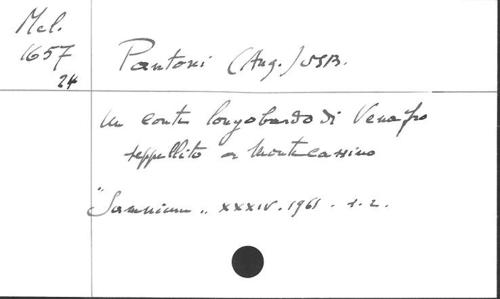 Mel.
1657
24
Pantoni (Ang.) OSB.
Un conte longobardo di Venafro
seppellito a Montecassino
"Samnium" XXXIV. 1961. 1-2.